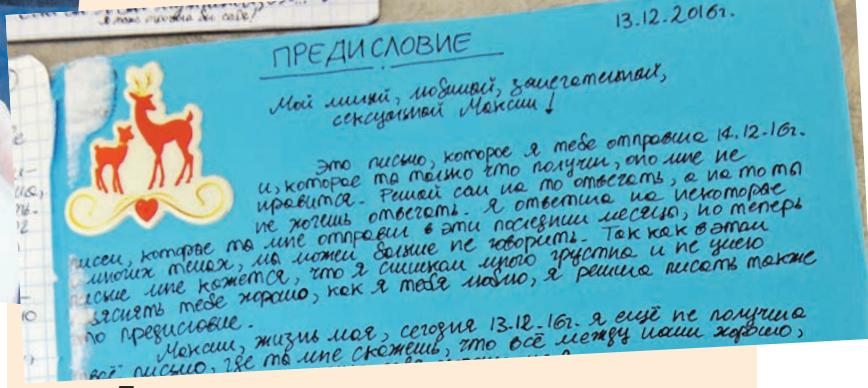 я тоже
13.12.2016г.
ПРЕДИСЛОВИЕ
Мой милый, любимый, замечательный,
сексуальной Максим!
Это письмо, которое я тебе отправила 14.12.16г.
и, которое ты только что получил, оно мне не
нравится. Решай сам на то отвечать, а на то ты
не хочешь отвечать. Я ответила на некоторые
писем, которые ты мне отправил в эти последнии месецы, но теперь
многих темах, мы можем больше не говорить. Так как в этом
письме мне кажется, что я слишком много грустна и не умею
яснять тебе хорошо, как я тебя люблю, я решила писать также
то предисловие.
Максим, жизнь моя, сегодня 13.12.16г. я ещё не получила
твоё письмо, где ты мне скажешь, что всё между нами хорошо,